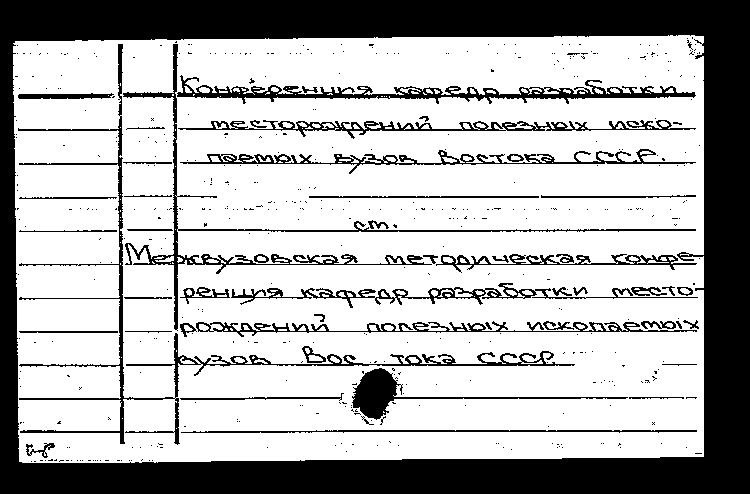 Конференция кафедр разработки
месторождений полезных иско-
паемых вузов Востока СССР.
см.
Межвузовская методическая конфе-
ренция кафедр разработки место-
рождений полезных ископаемых
вузов Вос тока СССР